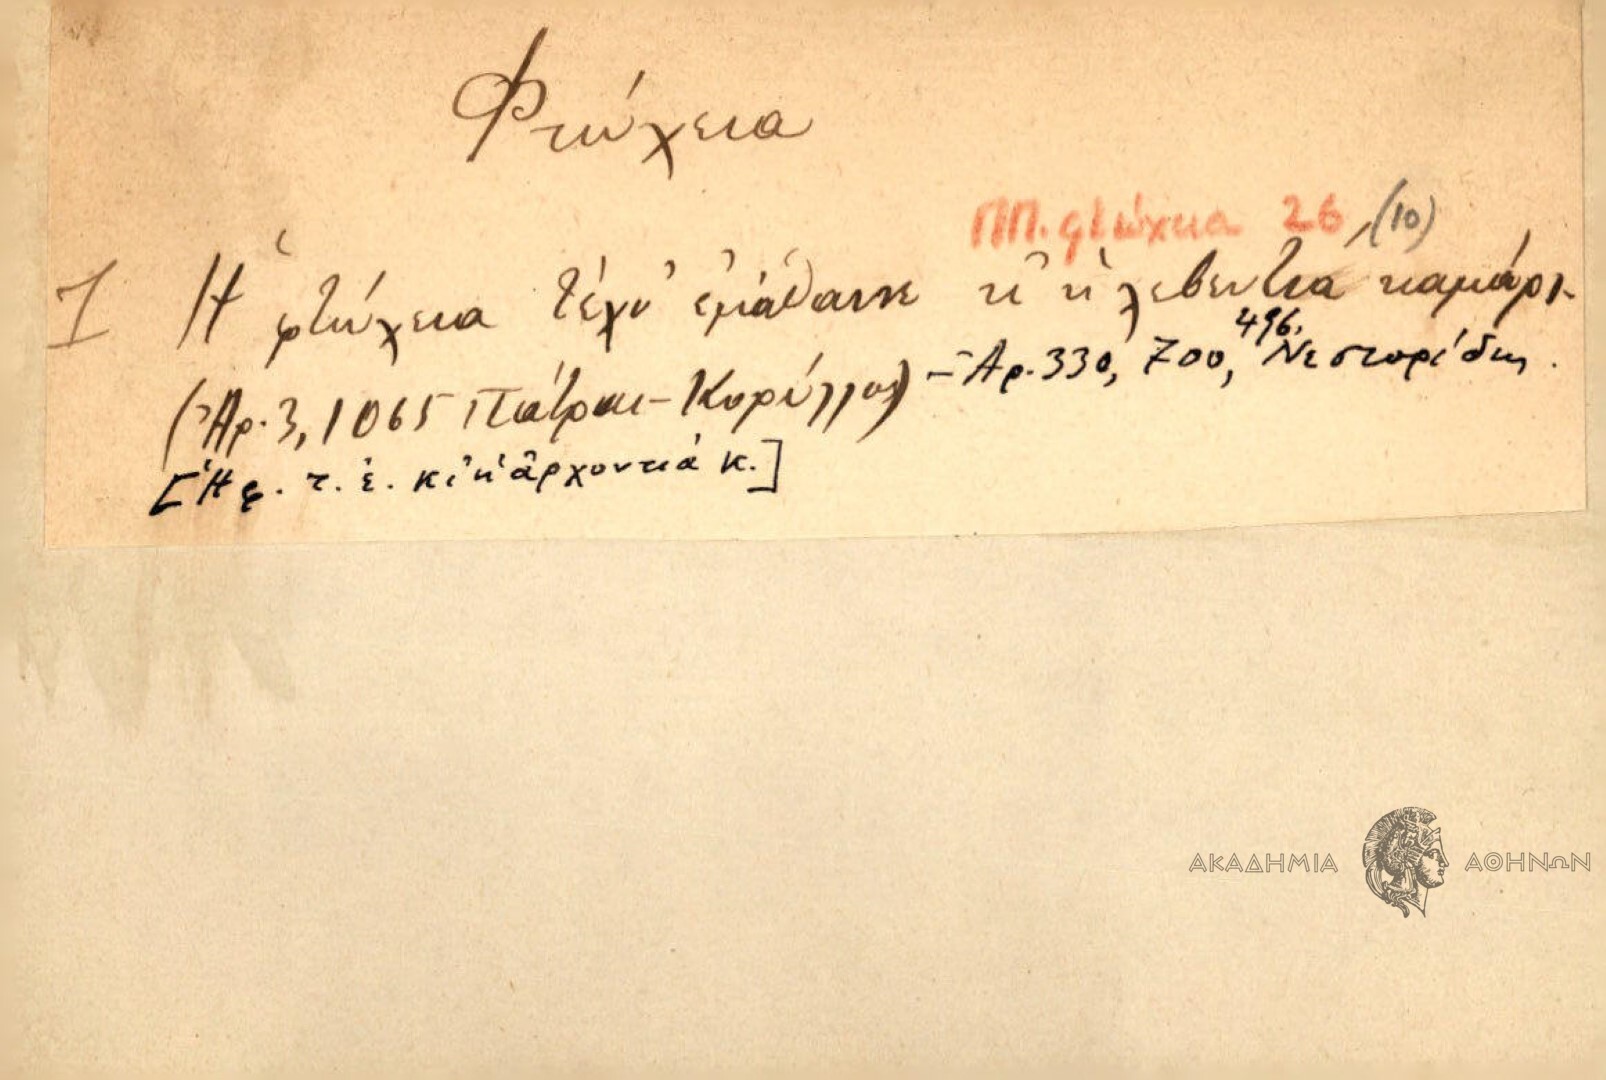 Φτώχεια
ΠΠ. φτώχεια 26 (10)
1 Ἡ φτώχεια τέχν' ἐμάθαινε κι' ἡ λεβεντιά καμάρι-
(Ἀρ. 3, 1065 Πάτραι - Κορύλλος) - Ἀρ. 330, 700, 496, Νεστορίδης.
[Ἡ φ. τ. ἐ. κι' ἡ ἀρχοντιά κ.]
ΑΚΑΔΗΜΙΑ ΑΘΗΝΩΝ